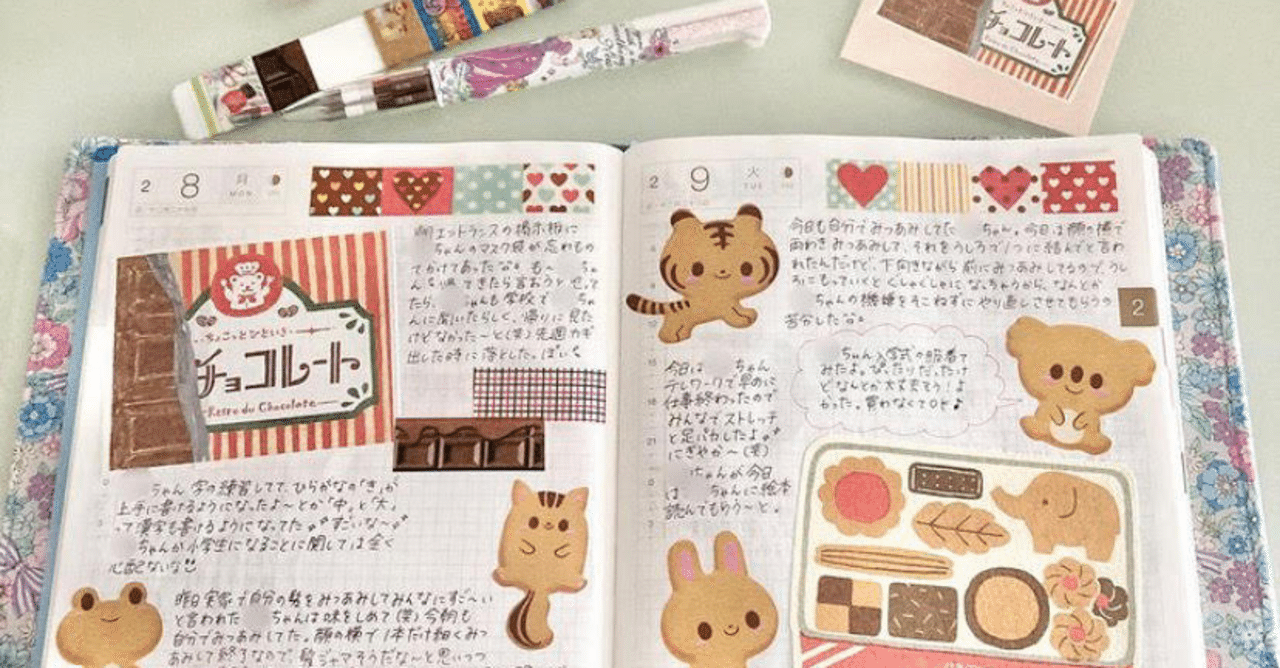 2 8 月
MON
朝エントランスの掲示板に
ちゃんのマスク袋が忘れもの
てかけてあったな。も〜 ちゃ
できたら言おうと思って
たら、 ゃんも学校で ちゃ
んに聞いたらしく、帰りに見た
けどなかった〜と(笑)先週カギ
出した時に落とした。ぽい
ちょこっとひといき
チョコレート
Retro du Chocolate
ちゃん 字の練習してて、ひらがなの「き」が
上手に書けるようになったよ〜とか「中」と「大」
って漢字も書けるようになってた すごいな〜
ちゃんが小学生になることに関しては全く
心配ないな
昨日実家で自分の髪をみつあみしてみんなにすご〜い
と言われた ちゃんは味をしめて(笑)今朝も
自分でみつあみしてた。顔の横で1本だけ細くみつ
あみして終了なので、髪ジャマそうだな〜と思いつつ
2 9 火
TUE
今日も自分でみつあみしてた ちゃん。今日は顔の横で
両わきみつあみして、それをうしろで1つに結んでと言わ
れたんだけど、下向きながら前にみつあみしてるので、うし
ろにもっていくとぐしゃぐしゃになっちゃうから、なんとか
ちゃんの機嫌をそこねずにやり直しさせてもらうの
苦労した
2
今日は ちゃん
テレワークで早めに
仕事終わったので
みんなでストレッチ
と足パカしたよ
にぎやか〜(笑)
ちゃんが今日
は ちゃんに絵本
読んでもらう〜と。
ちゃん入学式の服着て
みたよ。ぴったりだったけ
どなんとか大丈夫そう!よ
かった。買わなくてOK♪
チョコレート